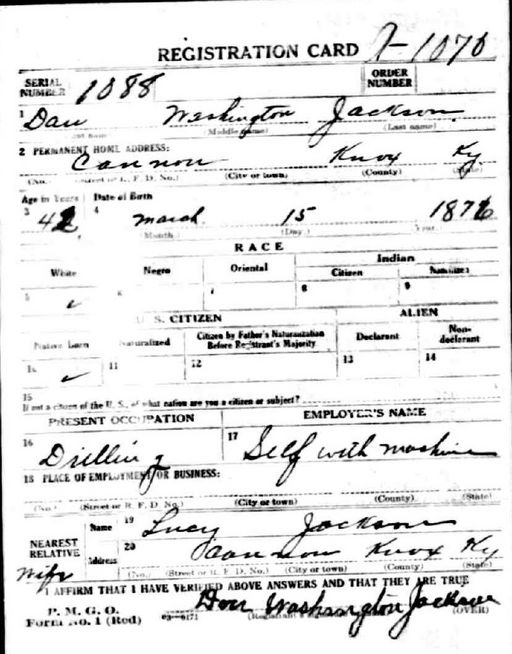 REGISTRATION CARD A-1070
SERIAL NUMBER 1088 ORDER NUMBER
1 Dan Washington Jackson
(Middle name) (Last name)
2 PERMANENT HOME ADDRESS:
Cannon Knox Ky
(No.) (Street or R. F. D. No.) (City or town) (County) (State)
Age in Years Date of Birth
3 42 4 March 15 1876
(Month) (Day) Year
RACE
White Negro Oriental Indian
Citizen Noncitizen
5 ✓ 6 7 8 9
U. S. CITIZEN ALIEN
Native Born Naturalized Citizen by Father's Naturalization Before Registrant's Majority Declarant Non-declarant
10 ✓ 11 12 13 14
15
If not a citizen of the U. S., of what nation are you a citizen or subject?
PRESENT OCCUPATION EMPLOYER'S NAME
16 Drilling 17 Self with machine
18 PLACE OF EMPLOYMENT OR BUSINESS:
(No.) (Street or R. F. D. No.) (City or town) (County) (State)
NEAREST RELATIVE Name 19 Lucy Jackson
Wife Address 20 Cannon Knox Ky
(No.) (Street or R. F. D. No.) (City or town) (County) (State)
I AFFIRM THAT I HAVE VERIFIED ABOVE ANSWERS AND THAT THEY ARE TRUE
P. M. G. O.
Form No. 1 (Red) 03-6171 Dan Washington Jackson (OVER)